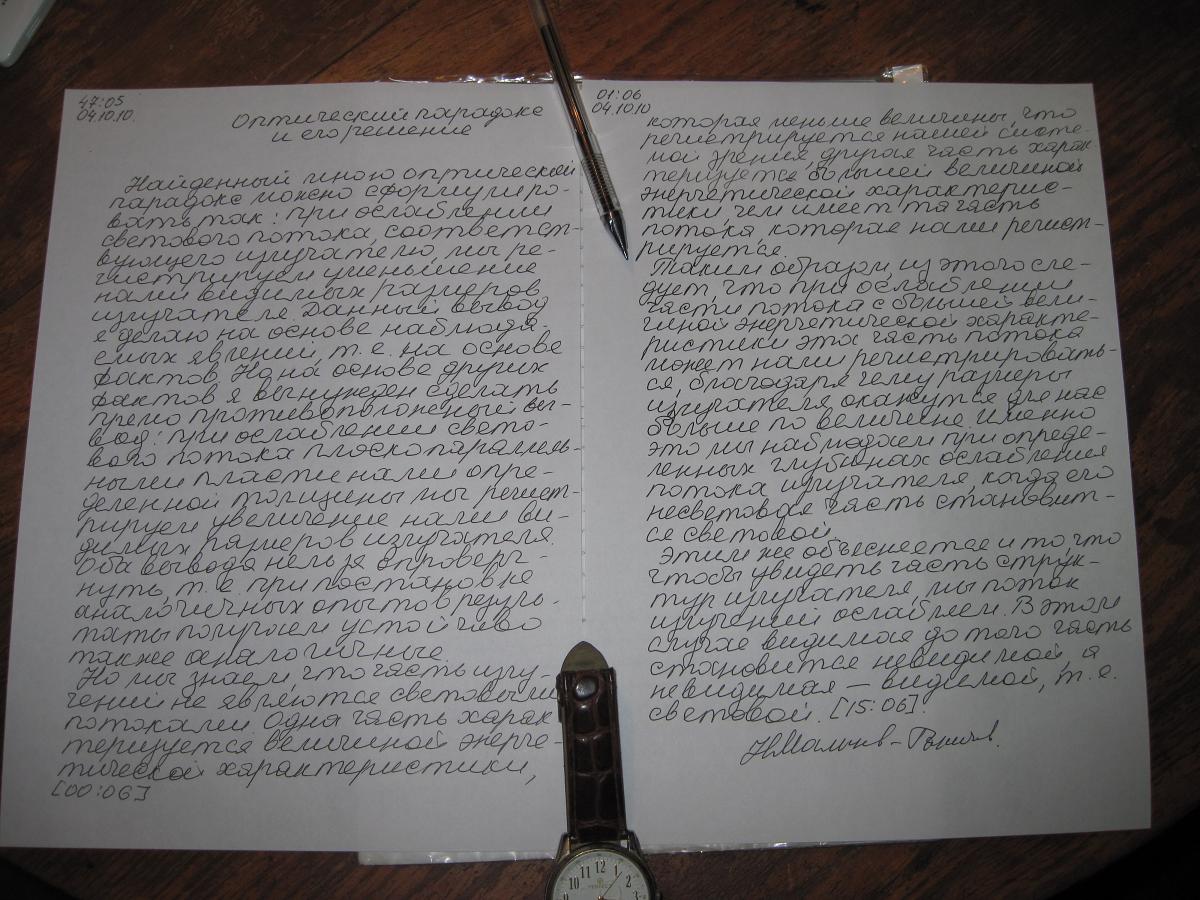 47:05
04.10.10.
Оптический парадокс
и его решение
Найденный мною оптический
парадокс можно сформулиро-
вать так: при ослаблении
светового потока, соответст-
вующего излучателю, мы ре-
гистрируем уменьшение
нами видимых размеров
излучателя. Данный вывод
я делаю на основе наблюда-
емых явлений, т.е. на основе
фактов. Но на основе других
фактов я вынужден сделать
прямо противоположный вы-
вод: при ослаблении свето-
вого потока плоскопараллель-
ными пластинами опре-
деленной толщины мы регист-
рируем увеличение нами ви-
димых размеров излучателя.
Оба вывода нельзя опроверг-
нуть, т.е. при постановке
аналогичных опытов резуль-
таты получаем устойчиво
также аналогичные.
Но мы знаем, что часть излу-
чений не являются световыми
потоками. Одна часть харак-
теризуется величиной энерге-
тической характеристики,
[00:06]
01:06
04.10.10
которая меньше величины, что
регистрируется нашей систе-
мой зрения, другая часть харак-
теризуется большей величиной
энергетической характерис-
тики, чем имеет та часть
потока которая нами регист-
рируется.
Таким образом, из этого сле-
дует, что при ослаблении
части потока с большей вели-
чиной энергетической характе-
ристики эта часть потока
может нами регистрировать-
ся, благодаря чему размеры
излучателя окажутся для нас
больше по величине. Именно
это мы наблюдаем при опреде-
ленных глубинах ослабления
потока излучателя, когда его
несветовая часть становит-
ся световой.
Этим же объясняется и то, что
чтобы увидеть часть струк-
тур излучателя, мы поток
излучений ослабляем. В этом
случае видимая до того часть
становится невидимой, а
невидимая — видимой, т.е.
световой. [15:06]
10 11 12 1 2
PERFECT